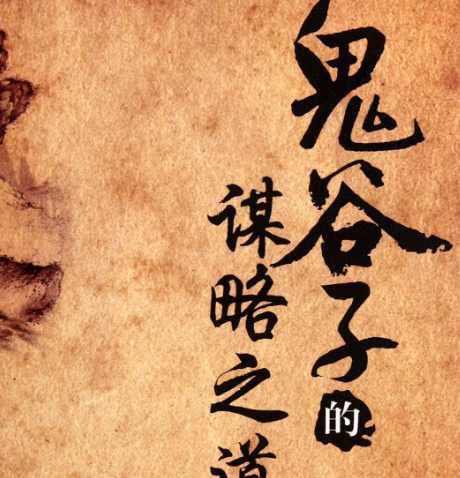 鬼谷子的
谋略之道